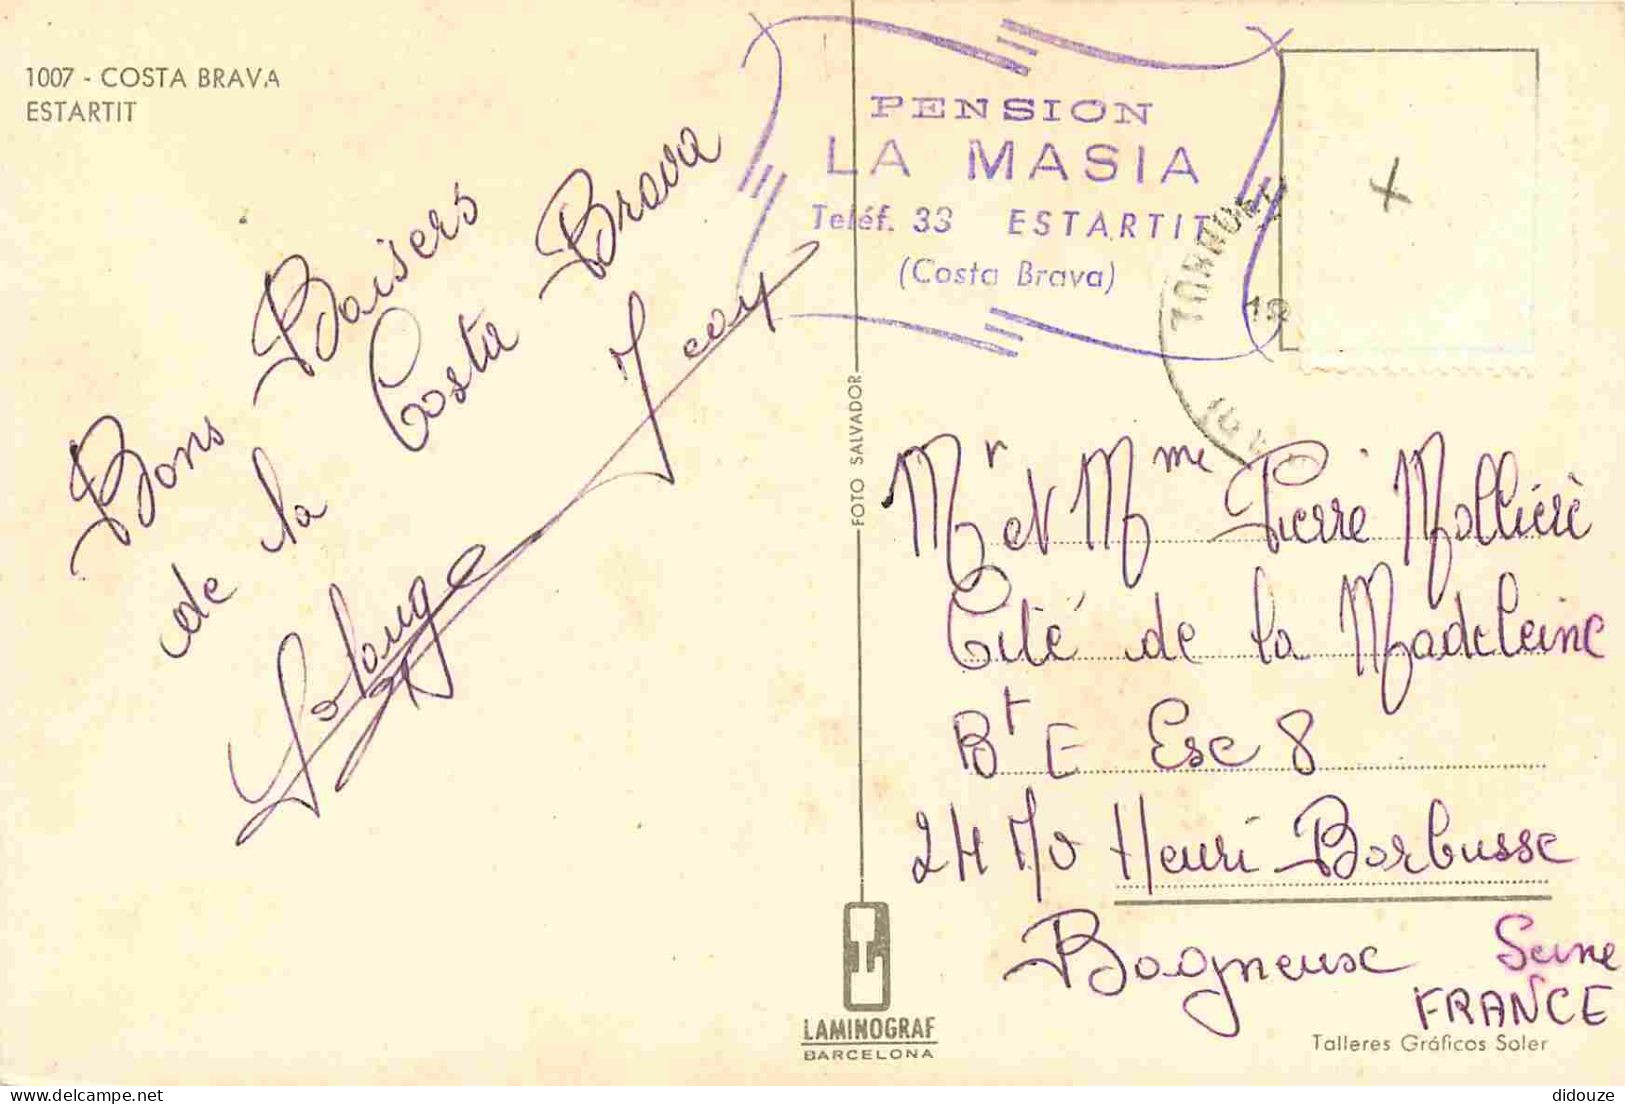 1007 - COSTA BRAVA
ESTARTIT
Bons Baisers
de la Costa Brava
Solange Jeany
PENSION
LA MASIA
Teléf. 33 ESTARTIT
(Costa Brava)
FOTO SALVADOR
Mr et Mme Pierre Mollière
Cité de la Madeleine
Bt E Esc 8
Henri Barbusse
Bagneux Seine
FRANCE
LAMINOGRAF
BARCELONA
Talleres Gráficos Soler
didouze